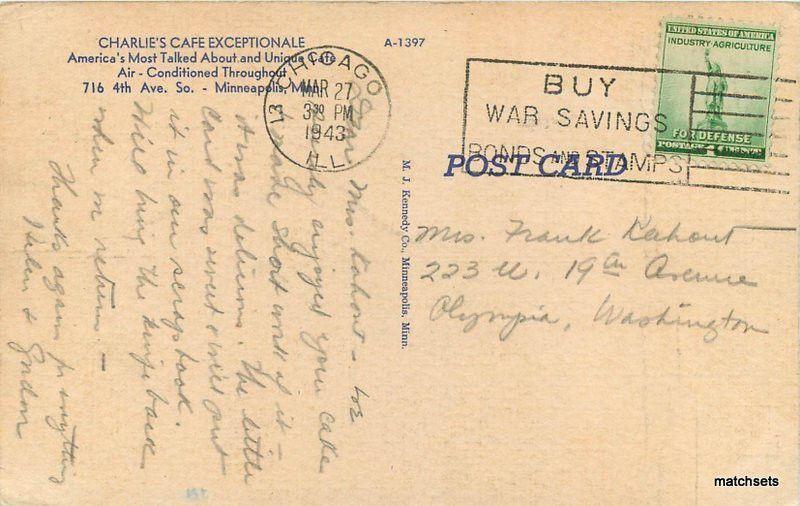 CHARLIE'S CAFE EXCEPTIONALE
America's Most Talked About and Unique Cafe
Air - Conditioned Throughout
716 4th Ave. So. - Minneapolis, Minn.
A-1397
CHICAGO
13
MAR 27
3 30 PM
1943
ILL.
BUY
WAR SAVINGS
BONDS AND STAMPS
UNITED STATES OF AMERICA
INDUSTRY-AGRICULTURE
FOR DEFENSE
POSTAGE 1 CENT
POST CARD
M. J. Kennedy Co., Minneapolis, Minn.
Dear Mrs. Kahout - We
enjoyed your cake
& made short work of it -
It was delicious. The little
card was sweet & will put
it in our scrap book.
Will bring the things back
when we return -
Thanks again for everything
Helen &
Mrs. Frank Kahout
223 W. 19th Avenue
Olympia, Washington
matchsets